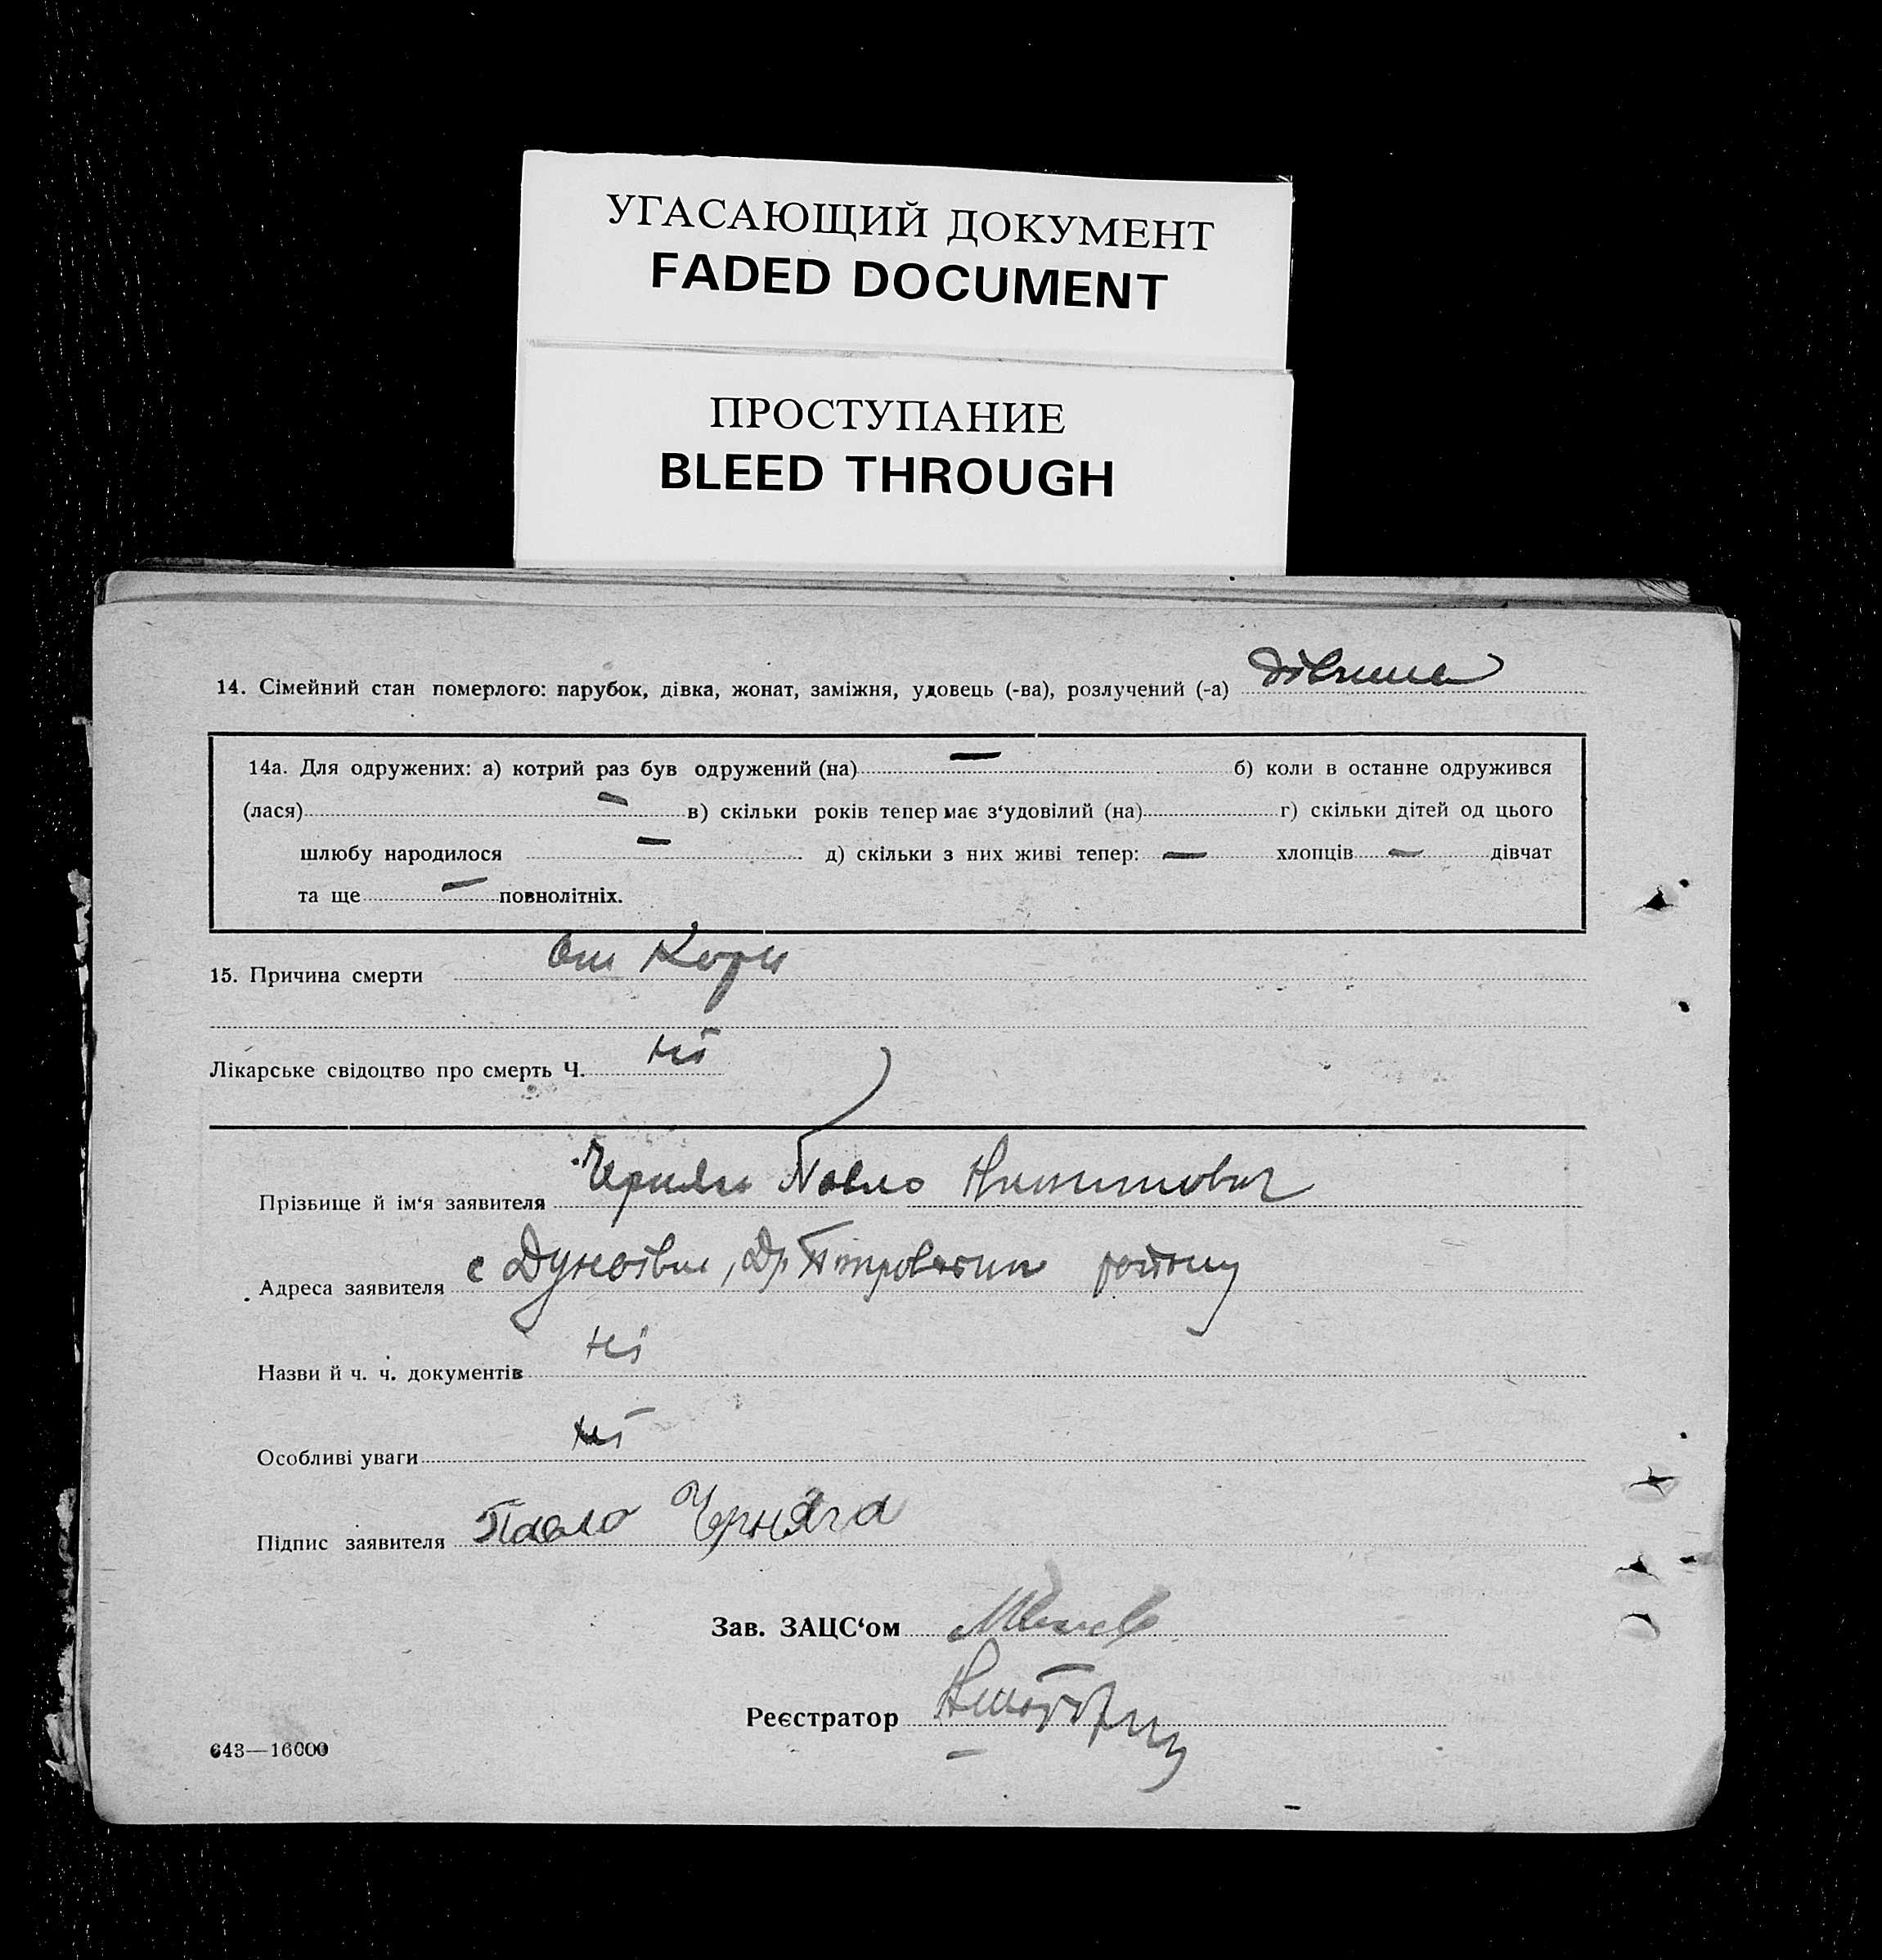 УГАСАЮЩИЙ ДОКУМЕНТ
FADED DOCUMENT
ПРОСТУПАНИЕ
BLEED THROUGH
14. Сімейний стан померлого: парубок, дівка, жонат, заміжня, удовець (-ва), розлучений (-а) дівчина
14а. Для одружених: а) котрий раз був одружений (на) — б) коли в останнє одружився
(лася) — в) скільки років тепер має з‘удовілий (на) г) скільки дітей од цього
шлюбу народилося — д) скільки з них живі тепер: — хлопців — дівчат
та ще — повнолітніх.
15. Причина смерти от Кори
Лікарське свідоцтво про смерть Ч. ні
Прізвище й ім‘я заявителя Павло
Адреса заявителя с району
Назви й ч. ч. документів ні
Особливі уваги ні
Підпис заявителя Павло Черняга
Зав. ЗАЦС‘ом
Реєстратор
643—16000